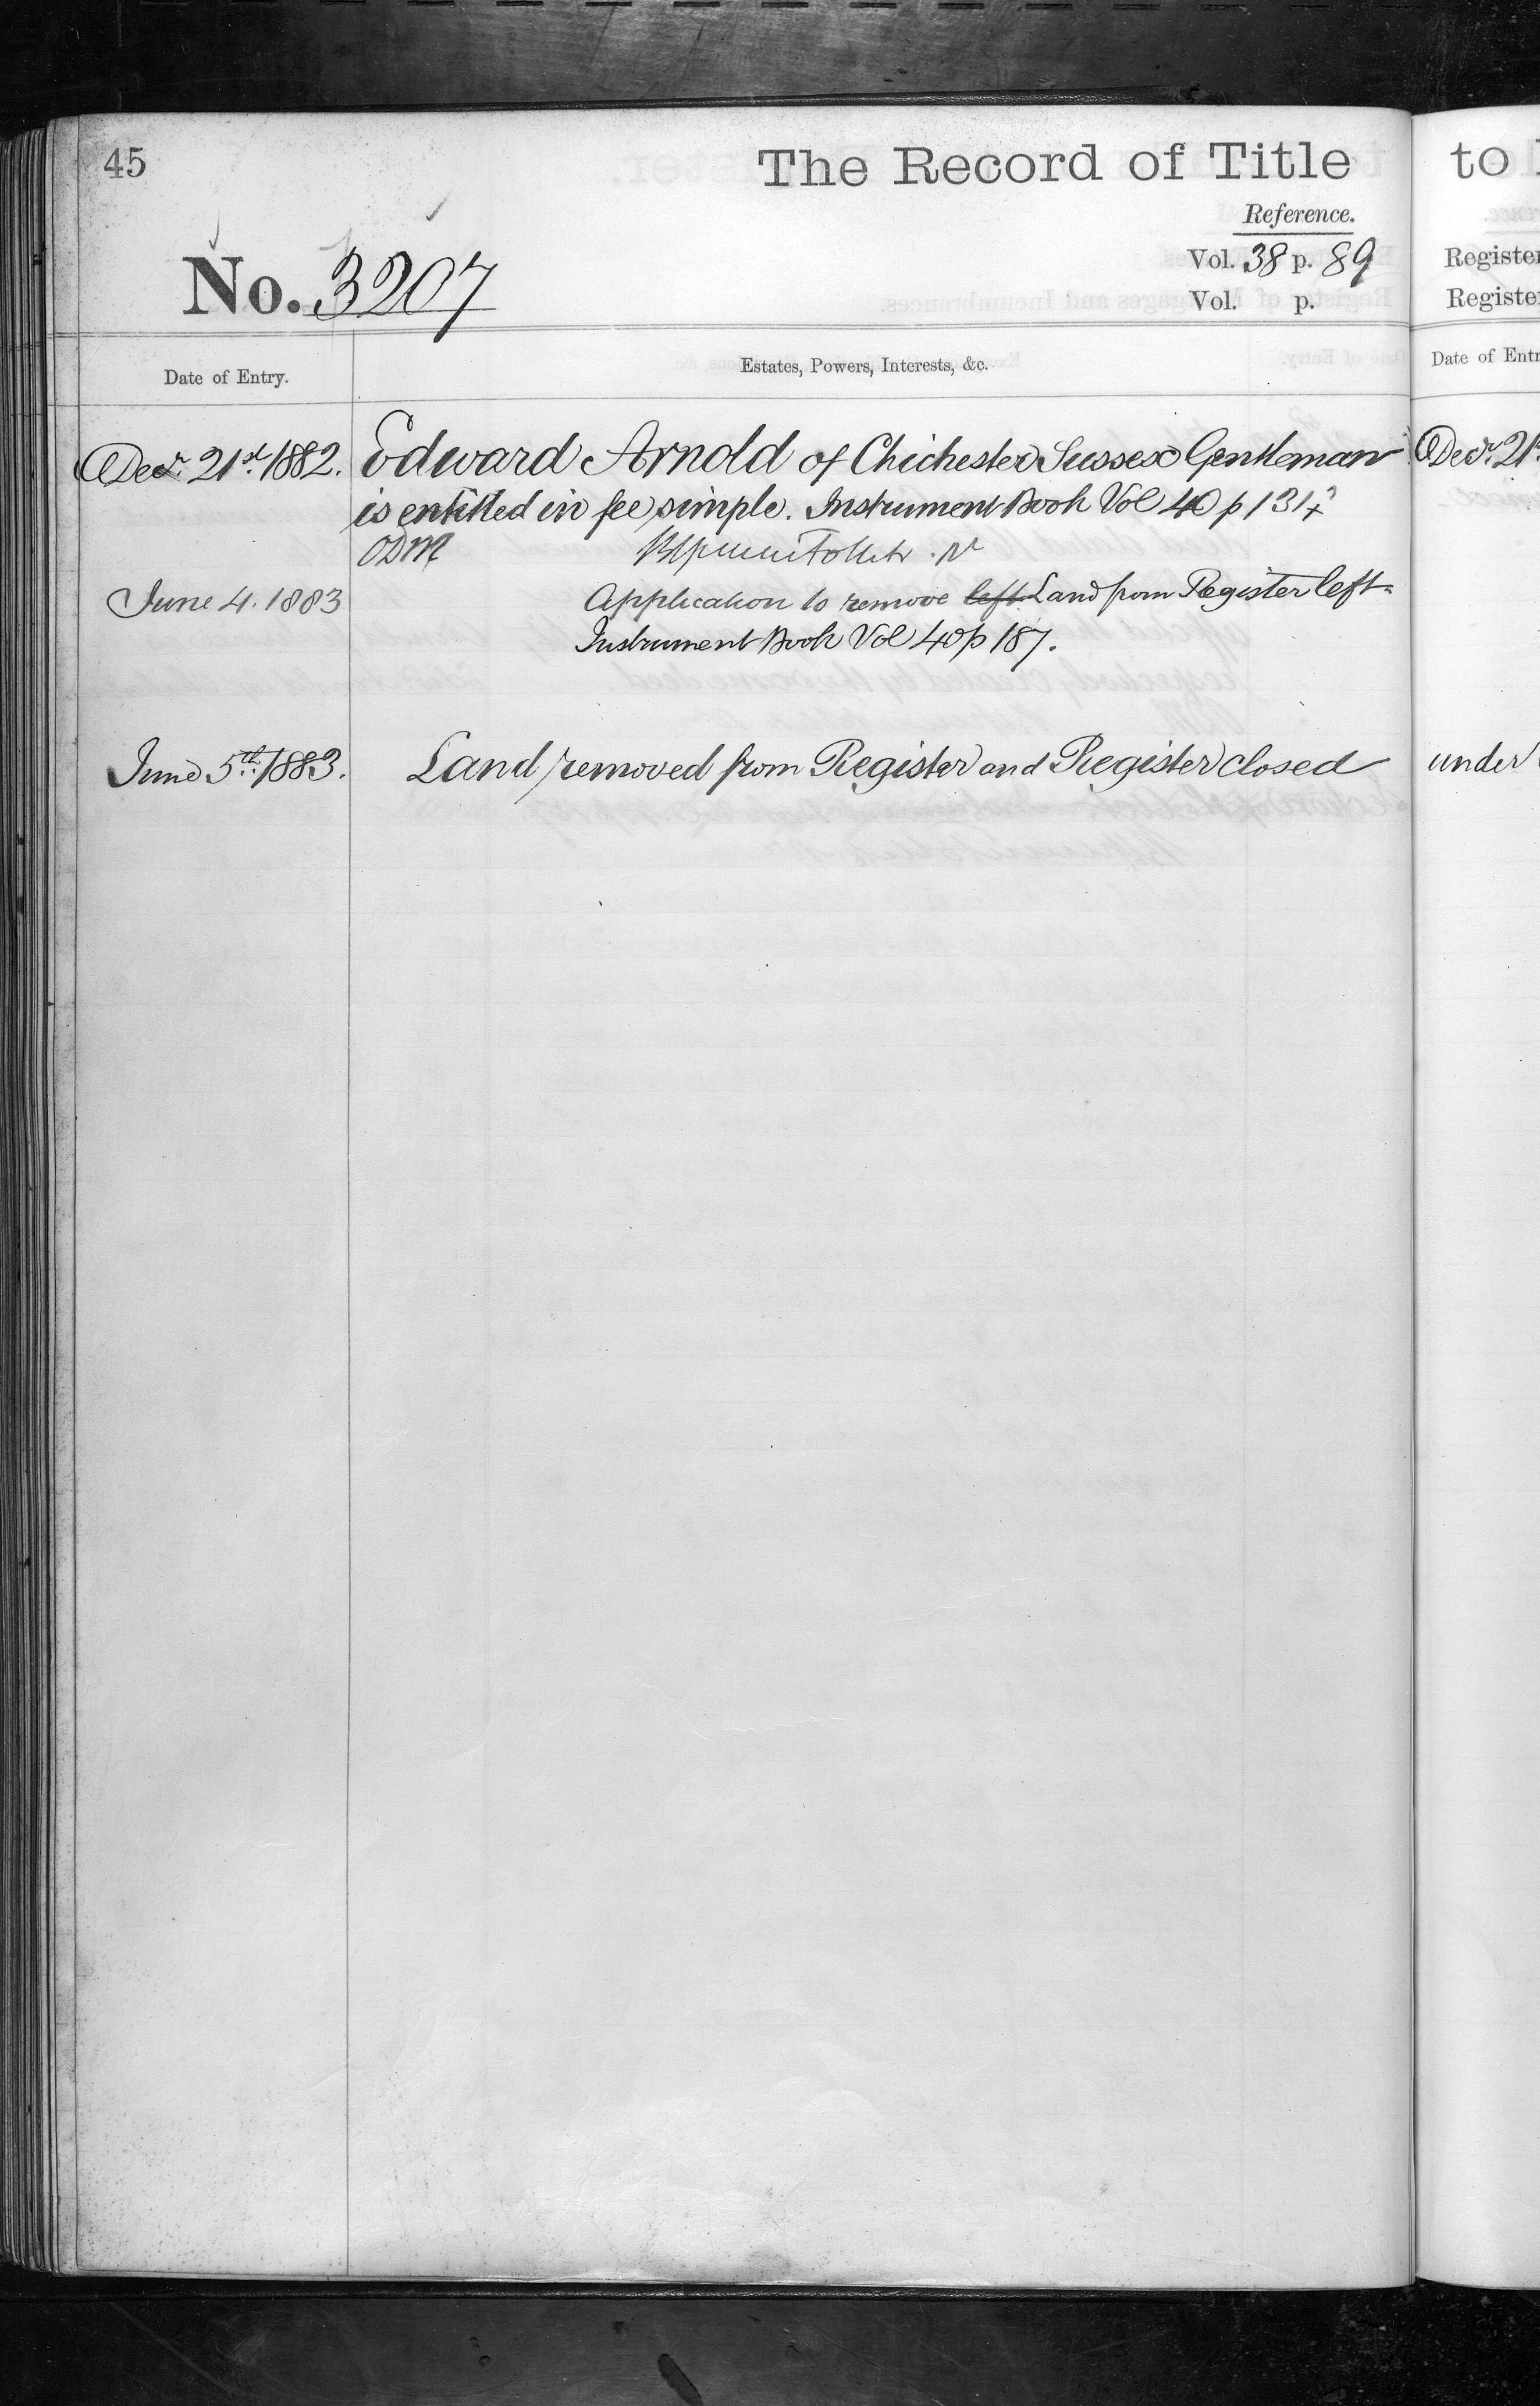 45
The Record of Title
Reference.
No. 3207
Vol. 38 p. 89
Vol. p.
Date of Entry.
Estates, Powers, Interests, &c.
Decr. 21st. 1882.
Edward Arnold of Chichester Sussex Gentleman
is entitled in fee simple. Instrument Book Vol 40 p 131
ODM
June 4. 1883
Application to remove left Land from Register left
Instrument Book Vol 40 p 187.
June 5th. 1883.
Land removed from Register and Register closed
to
Register
Register
Date of Entr
Decr. 21
under